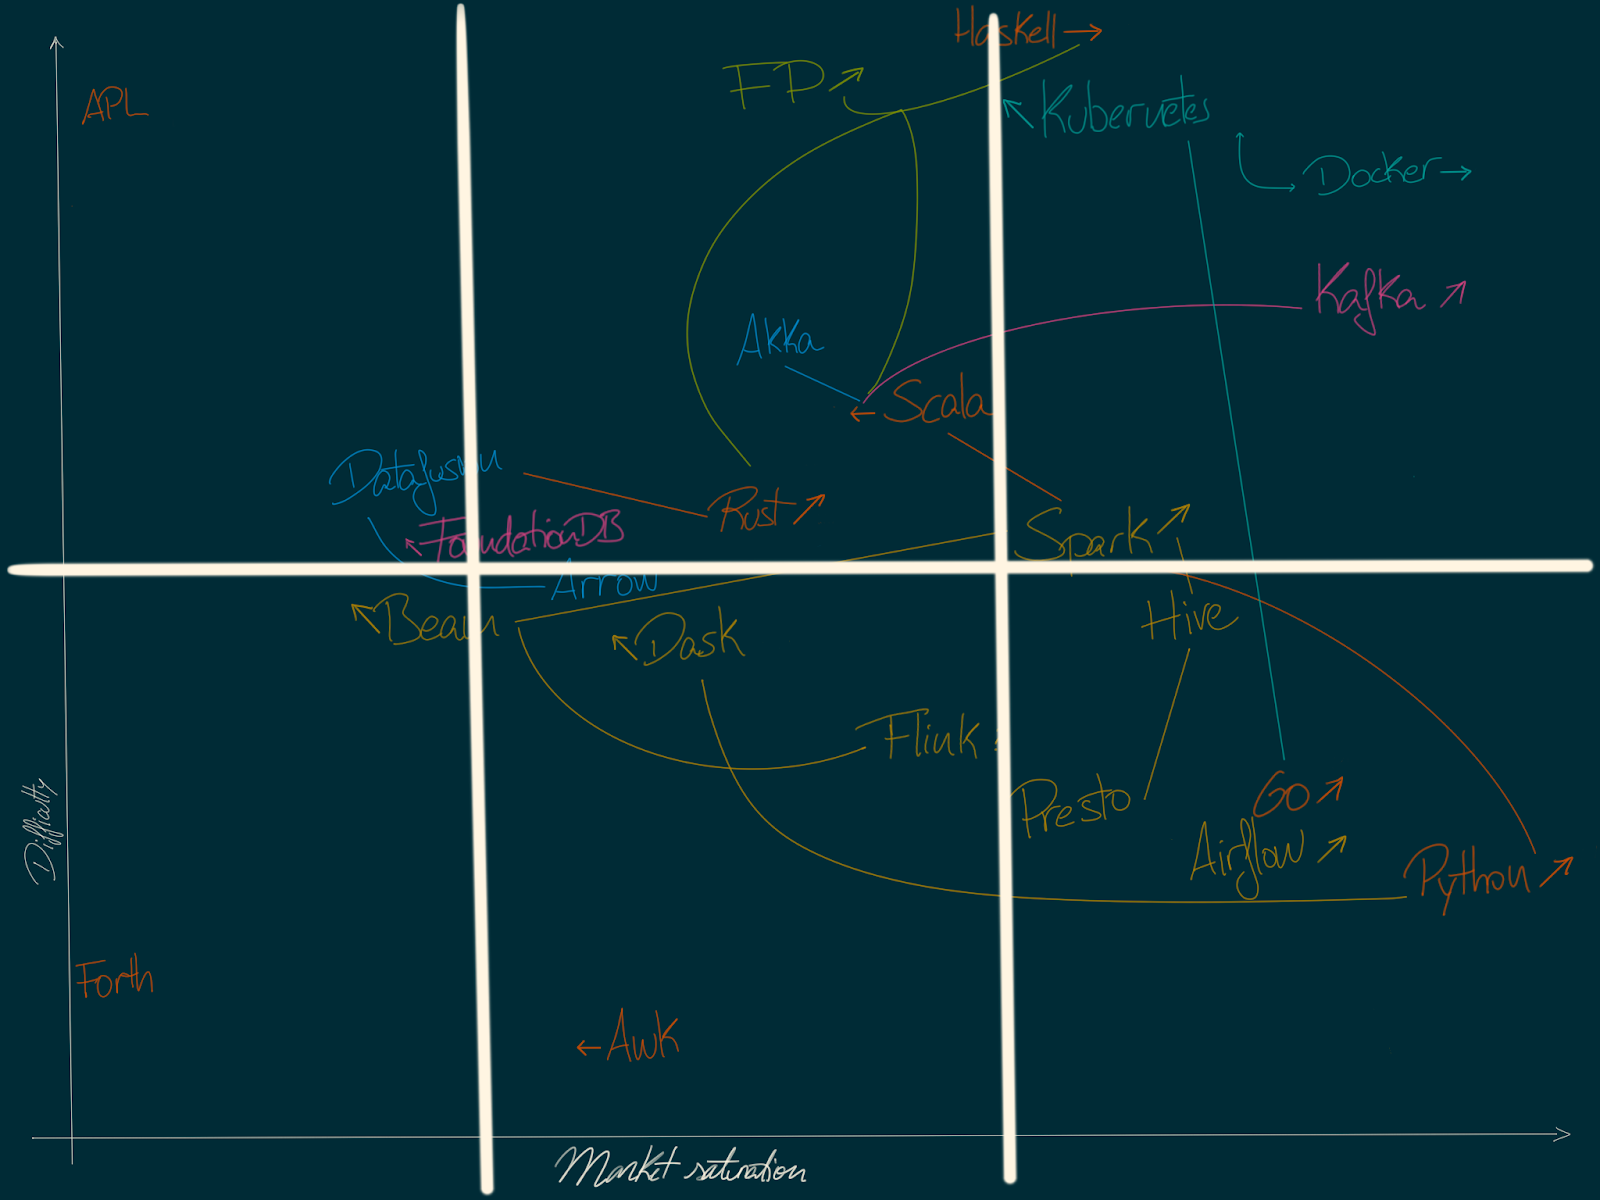 Haskell →
FP ↗
APL
↖ Kubernetes
Docker →
Kafka ↗
Akka
← Scala
Datafusion
Rust ↗
↖ FoundationDB
Spark ↗
Arrow
↖ Beam
↖ Dask
Hive
Flink
Presto
Go ↗
Airflow ↗
Python ↗
Difficulty
Forth
← Awk
Market saturation